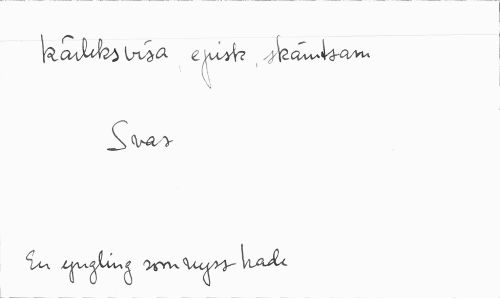 Kärleksvisa, episk, skämtsam
Svar
En yngling som nyss hade